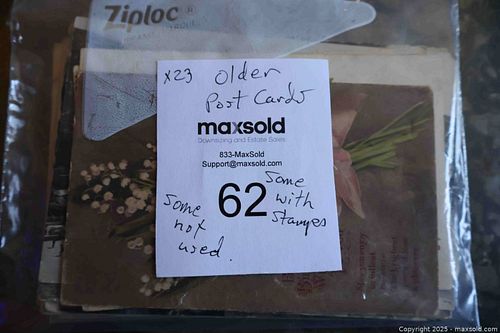 Ziploc
x23 older
Post Cards
maxsold
Downsizing and Estate Sales
833-MaxSold
Support@maxsold.com
62
Some
with
Stamps
Some
not
used.
Copyright 2025 - maxsold.com